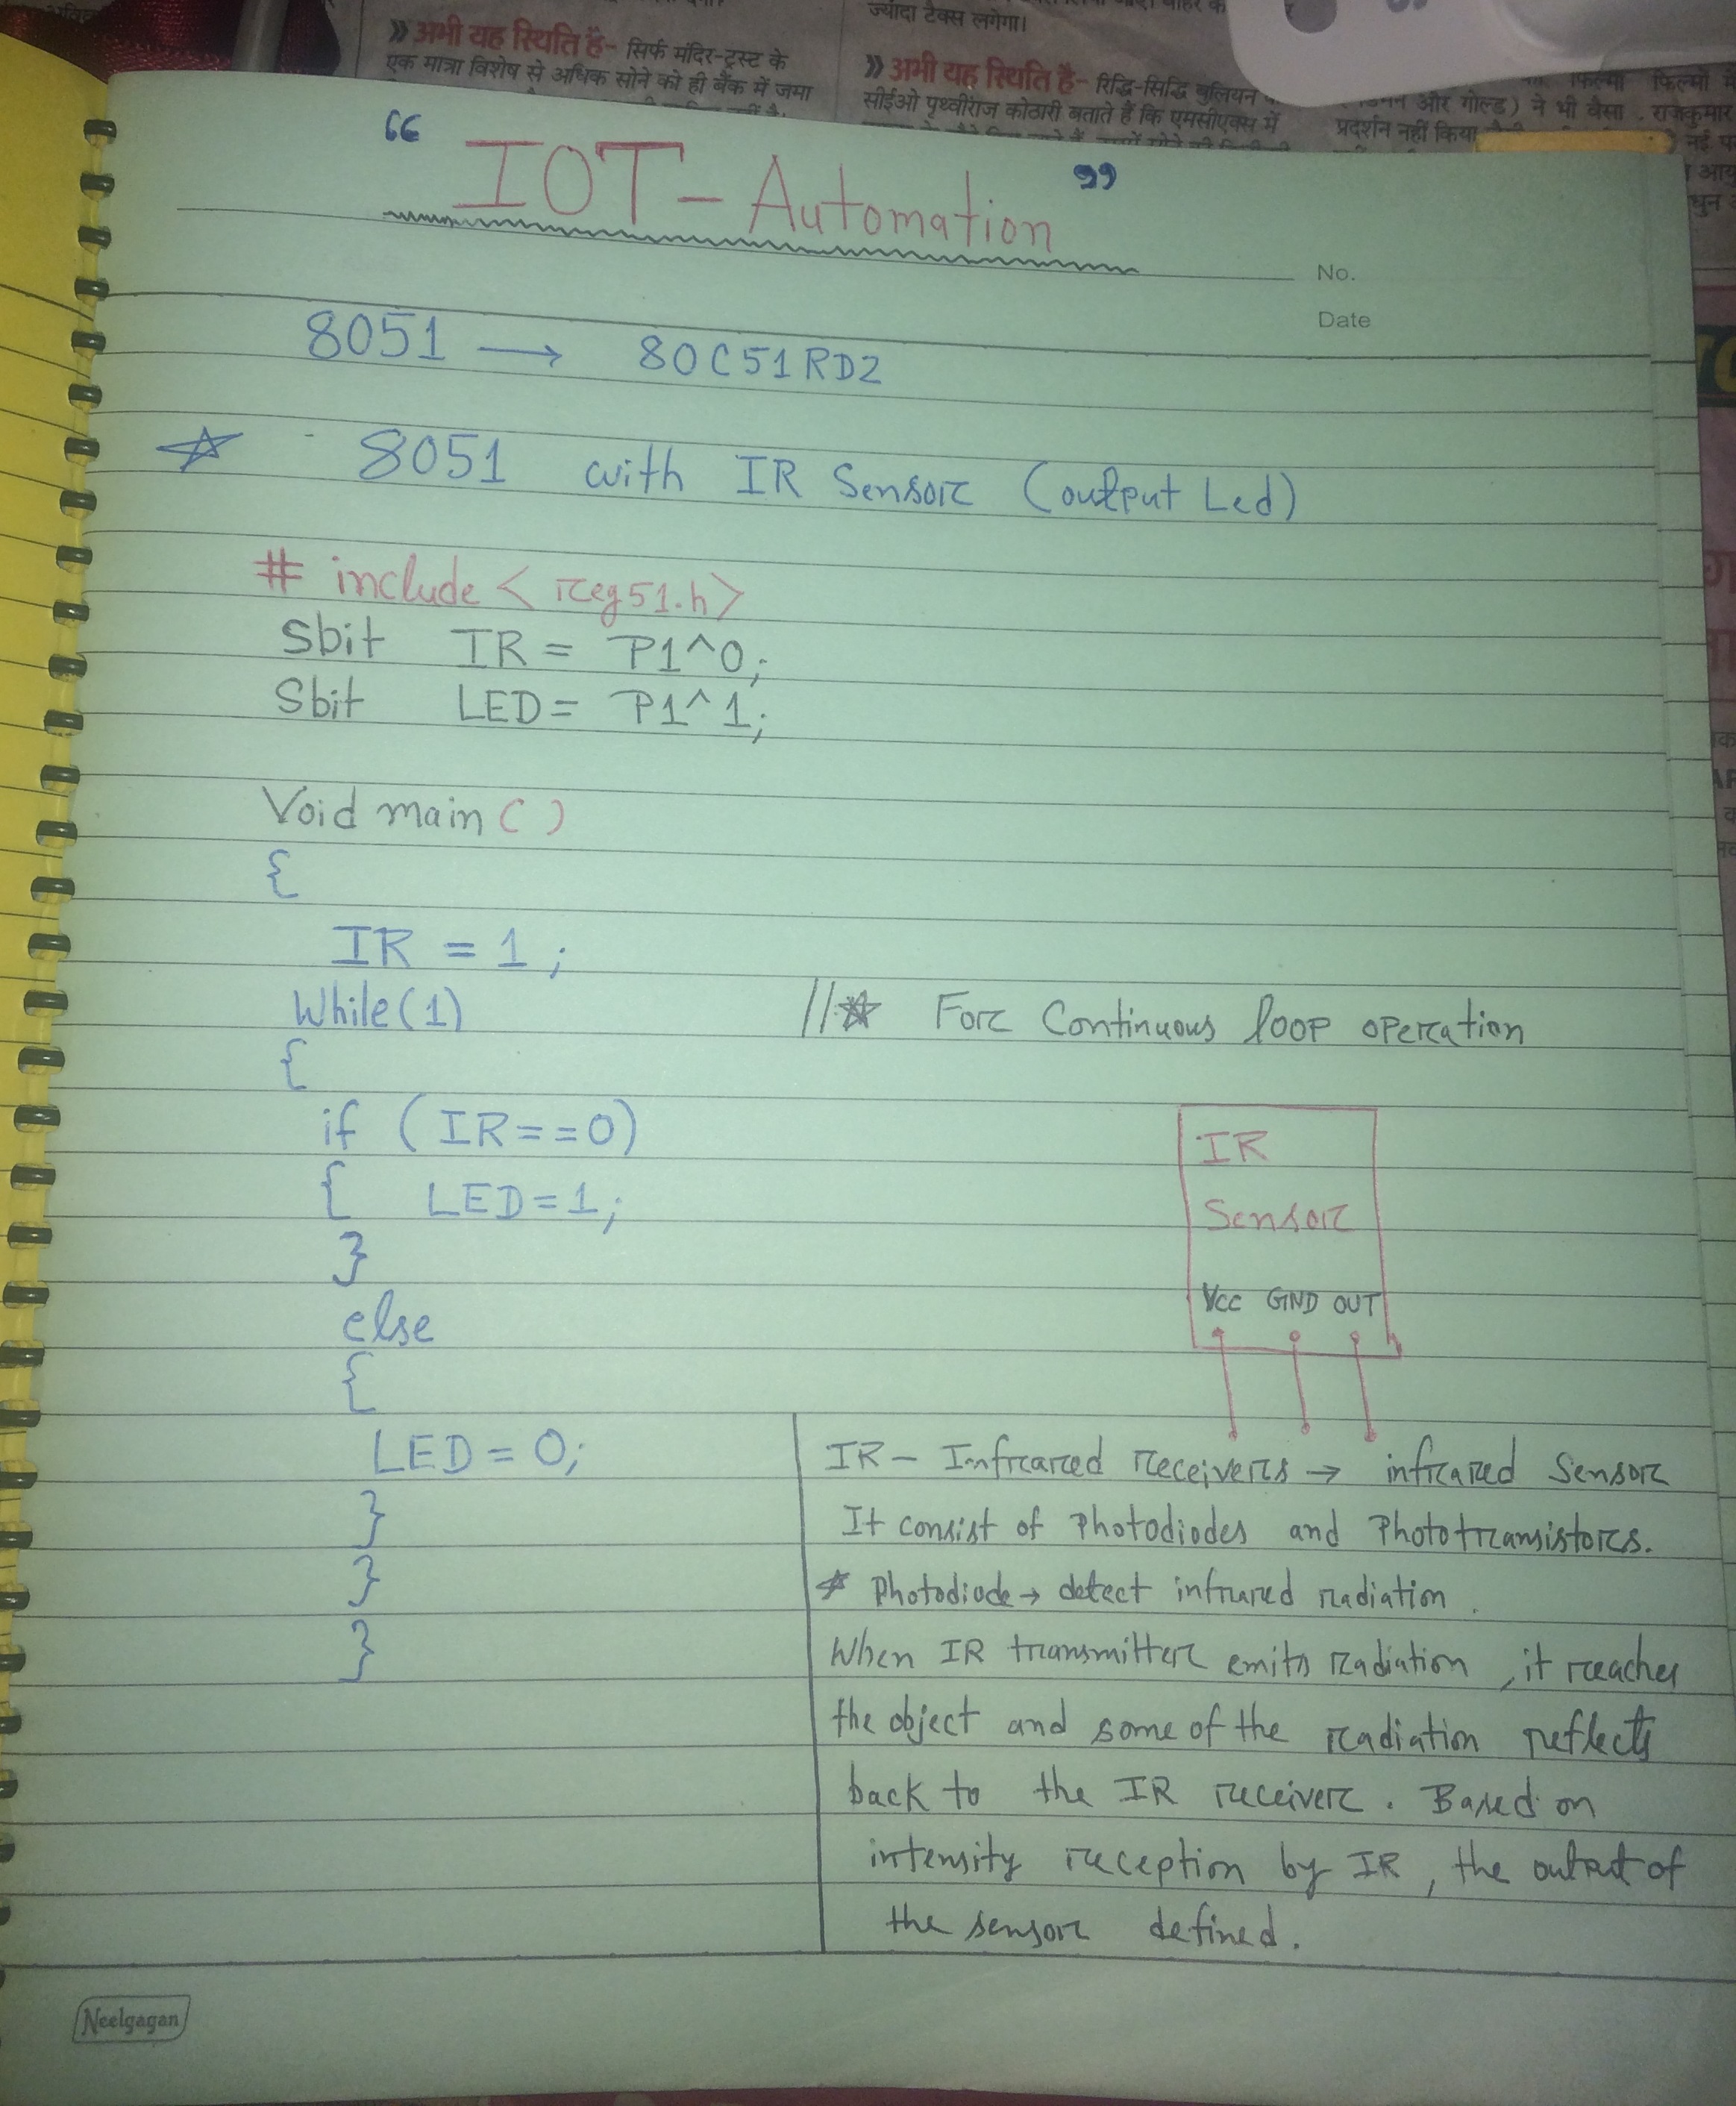 ज्यादा टैक्स लगेगा।
» अभी यह स्थिति है- सिर्फ मंदिर-ट्रस्ट के
एक मात्रा विशेष से अधिक सोने को ही बैंक में जमा
» अभी यह स्थिति है- रिद्धि-सिद्धि बुलियन
सीईओ पृथ्वीराज कोठारी बताते हैं कि एमसीएक्स में
और गोल्ड) ने भी वैसा
प्रदर्शन नहीं किया
फिल्मों
राजकुमार
“ IOT - Automation ”
No.
Date
8051 → 80C51RD2
☆ 8051 with IR Sensor (output Led)
# include < reg51.h>
Sbit IR = P1^0;
Sbit LED = P1^1;
Void main ( )
{
IR = 1 ;
While(1) //☆ For Continuous loop operation
{
if ( IR==0)
{ LED=1;
}
else
{
LED = 0;
}
}
}
IR
Sensor
Vcc GND OUT
IR - Infrared receivers → infrared Sensor
It consist of Photodiodes and Phototransistors.
☆ Photodiode → detect infrared radiation.
When IR transmitter emits radiation , it reaches
the object and some of the radiation reflects
back to the IR receiver. Based on
intensity reception by IR, the output of
the sensor defined.
Neelgagan